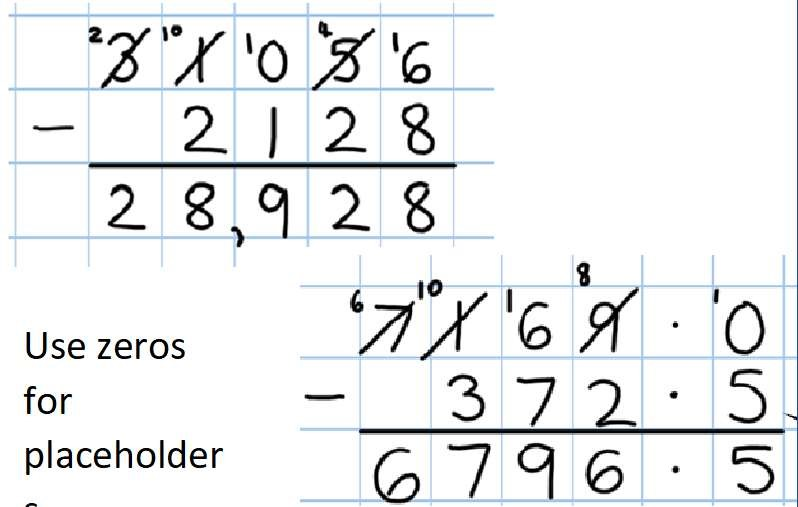 2 3 10 1 1 0 4 5 1 6
− 2 1 2 8
2 8 , 9 2 8
6 7 10 1 1 6 8 9 · 1 0
− 3 7 2 · 5
6 7 9 6 · 5
Use zeros
for
placeholder